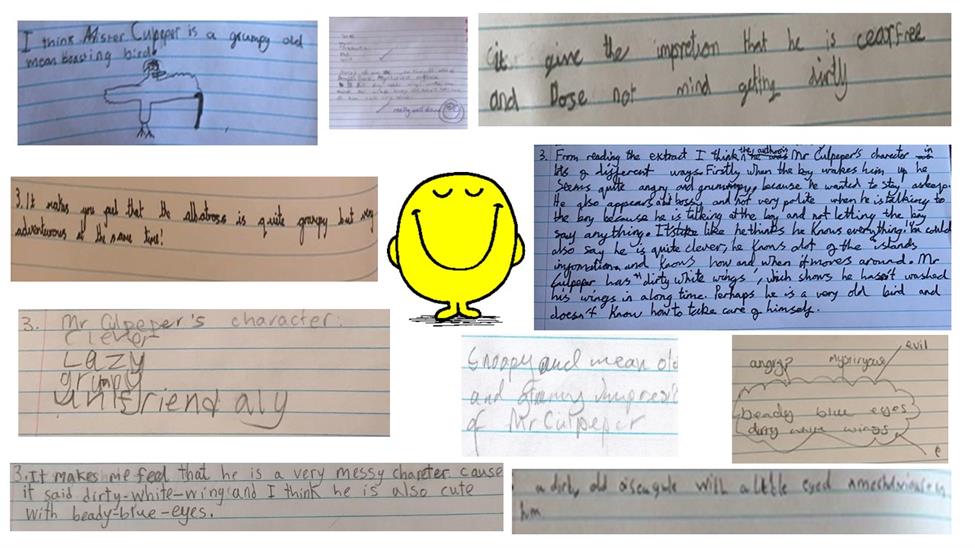 I think Mister Culpeper is a grumpy old
mean boasting bird.
really well done
it give the impretion that he is cearfree
and Dose not mind getting dirty
3. It makes you feel that the albatross is quite grumpy but very
adventurous at the same time!
3. From reading the extract I think the author is Mr Culpeper's character in
lots of different ways. Firstly when the boy wakes him up he
seems quite angry and grummpy, because he wanted to stay asleep.
He also appears alot bossy and not very polite when he is talking to
the boy because he is talking at the boy and not letting the boy
say anything. It's like he thinks he knows everything. You could
also say he is quite clever, he knows alot of the islands
information and knows how and when it moves around. Mr
Culpeper has "dirty white wings", which shows he hasn't washed
his wings in a long time. Perhaps he is a very old bird and
doesn't know how to take care of himself.
3. Mr Culpeper's character:
clever
Lazy
grumpy
unfriendaly
Snoopy and mean old
and grumpy impress
of Mr Culpeper
angry?
mystiryous
evil
beady blue eyes
dirty white wings
e
3. It makes me feel that he is a very messy chareter cause
it said dirty-white-wing and I think he is also cute
with beady-blue-eyes.
a dirty old with a little eyed
him